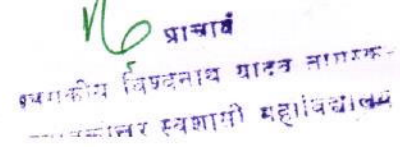 प्राचार्य
शासकीय विश्वनाथ यादव तामस्कर
स्नातकोत्तर स्वशासी महाविद्यालय